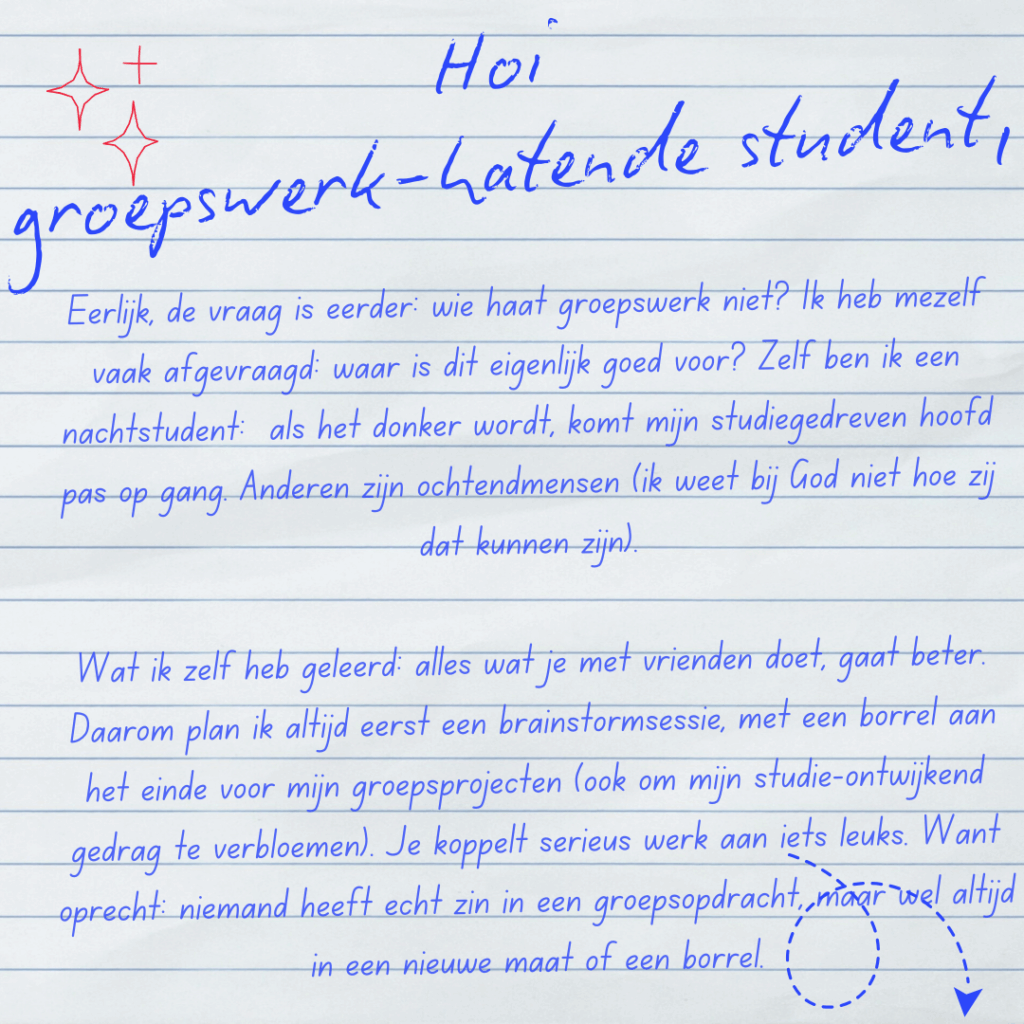 Hoi
groepswerk-hatende student,
Eerlijk, de vraag is eerder: wie haat groepswerk niet? Ik heb mezelf
vaak afgevraagd: waar is dit eigenlijk goed voor? Zelf ben ik een
nachtstudent: als het donker wordt, komt mijn studiegedreven hoofd
pas op gang. Anderen zijn ochtendmensen (ik weet bij God niet hoe zij
dat kunnen zijn).
Wat ik zelf heb geleerd: alles wat je met vrienden doet, gaat beter.
Daarom plan ik altijd eerst een brainstormsessie, met een borrel aan
het einde voor mijn groepsprojecten (ook om mijn studie-ontwijkend
gedrag te verbloemen). Je koppelt serieus werk aan iets leuks. Want
oprecht: niemand heeft echt zin in een groepsopdracht, maar wel altijd
in een nieuwe maat of een borrel.